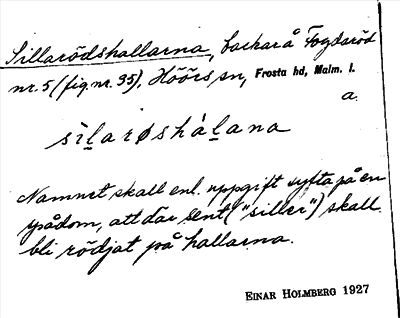 Sillarödshallarna, backar å Fogdaröd
nr. 5 (fig. nr. 35), Höörs sn, Frosta hd, Malm. l.
a.
sìlarøshálana
Namnet skall enl. uppgift syfta på en
spådom, att där sent ("siller") skall
bli rödjat på hallarna.
EINAR HOLMBERG 1927